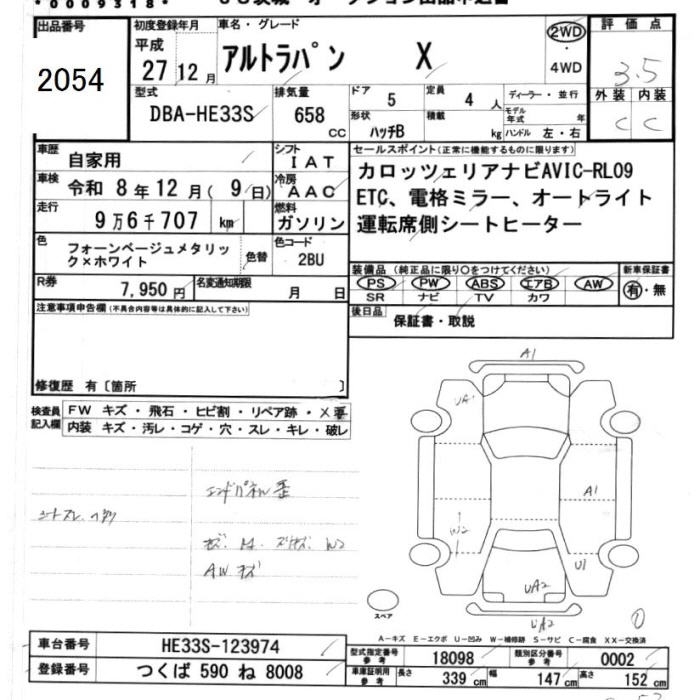 出品番号
2054
初度登録年月
平成
27 12 月
車名・グレード
アルトラパン X
2WD
・
4WD
評価点
3.5
外装 内装
C C
型式
DBA-HE33S
排気量
658 CC
ドア 5
定員 4 人
ディーラー・並行
形状 ハッチB
積載 kg
モデル年式 年
ハンドル 左・右
車歴 自家用
シフト IAT
車検 令和 8 年 12 月 ( 9 日)
冷房 AAC
走行 9 万 6 千 707 km
燃料 ガソリン
色 フォーンベージュメタリック×ホワイト
色替
色コード 2BU
R券 7,950 円
名変通知期限 月 日
セールスポイント(正常に機能するものに限ります)
カロッツェリアナビAVIC-RL09
ETC、電格ミラー、オートライト
運転席側シートヒーター
装備品(純正品に限り○をつけてください)
PS PW ABS エアB AW
SR ナビ TV カワ
新車保証書
有・無
後日品 保証書・取説
注意事項申告欄(不具合内容等は具体的に記入して下さい)
修復歴 有〔箇所 〕
検査員記入欄
FW キズ・飛石・ヒビ割・リペア跡・X要
内装 キズ・汚レ・コゲ・穴・スレ・キレ・破レ
エンドパネル歪
AW キズ
A1
UA1
A1
W2
U1
UA2
UA2
スペア
A-キズ E-エクボ U-凹み W-補修跡 S-サビ C-腐食 XX-交換済
車台番号 HE33S-123974
登録番号 つくば 590 ね 8008
型式指定番号 参考 18098
類別区分番号 参考 0002
車庫証明用 参考 長さ 339 cm 幅 147 cm 高さ 152 cm